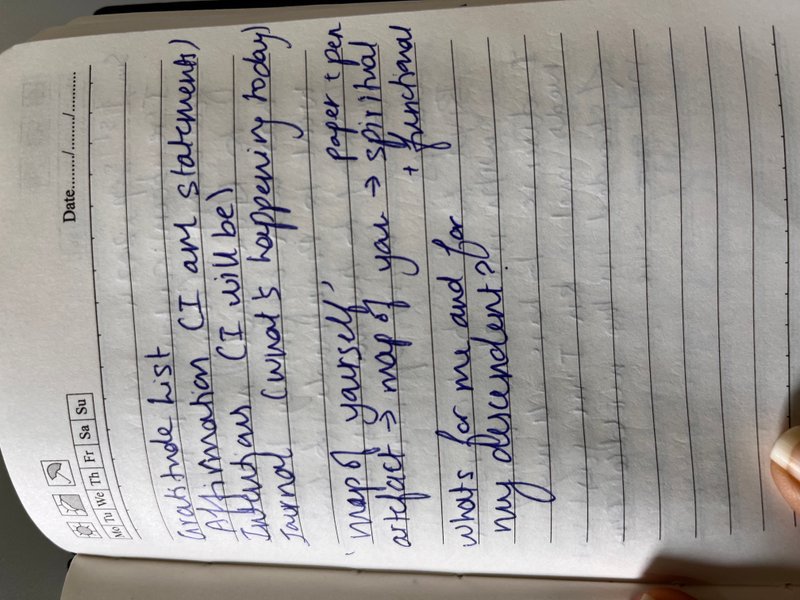 Date......../......../...........
Mo Tu We Th Fr Sa Su
Gratitude List
Affirmation (I am statements)
Intentions (I will be)
Journal (what's happening today)
paper + pen
'map of yourself'
artefact → map of you → spiritual
+ functional
whats for me and for
my descendent?